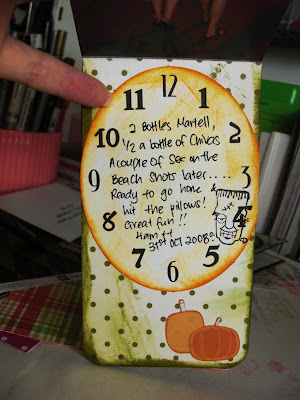 11 12 1
10 2 Bottles Martell, 2
1/2 a bottle of Chivas
A couple of Sex on the
9 Beach Shots later.... 3
Ready to go home &
8 hit the pillows! 4
Great fun!!
4am++
31st Oct 2008
7 6 5